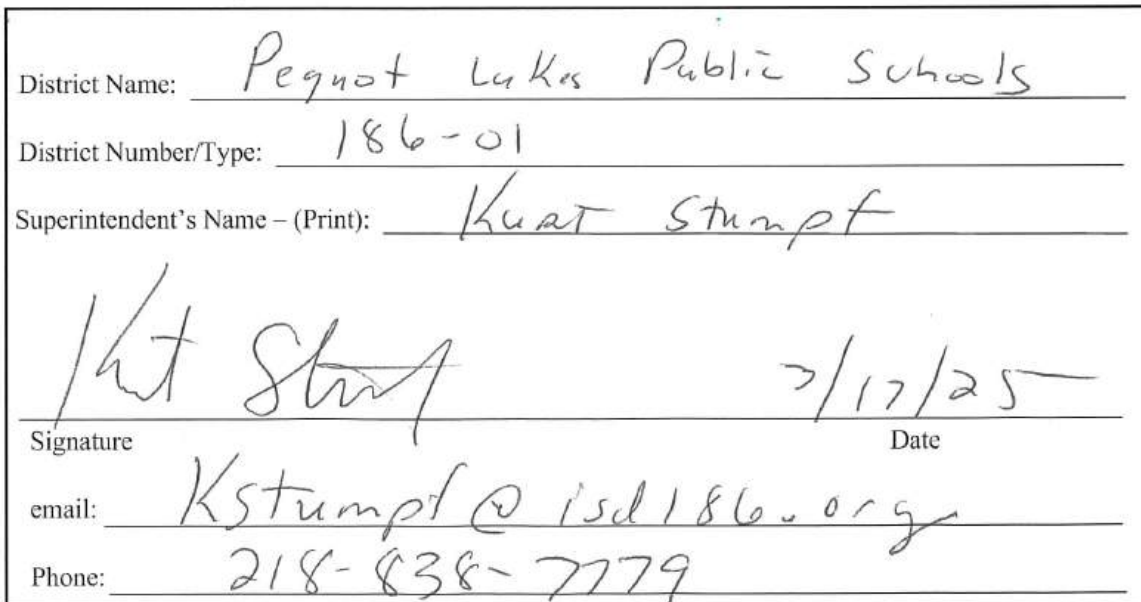 District Name: Pequot Lakes Public Schools
District Number/Type: 186-01
Superintendent's Name – (Print): Kurt Stumpf
Kurt Stumpf 7/17/25
Signature Date
email: Kstumpf@isd186.org
Phone: 218-838-7779